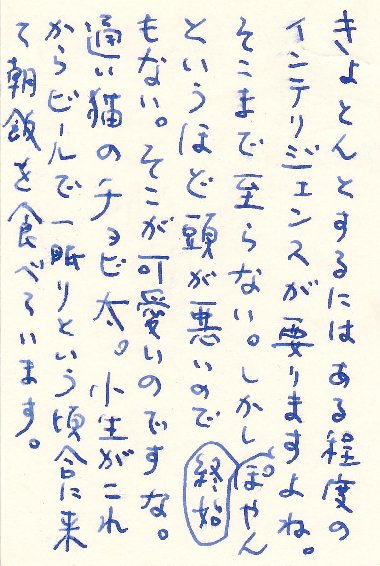 きょとんとするにはある程度の
インテリジェンスが要りますよね。
そこまで至らない。しかしぽやん
というほど頭が悪いので
終始
もない。そこが可愛いのですな。
通い猫のチョビ太。小生がこれ
からビールで一眠りという頃合に来
て朝飯を食べています。